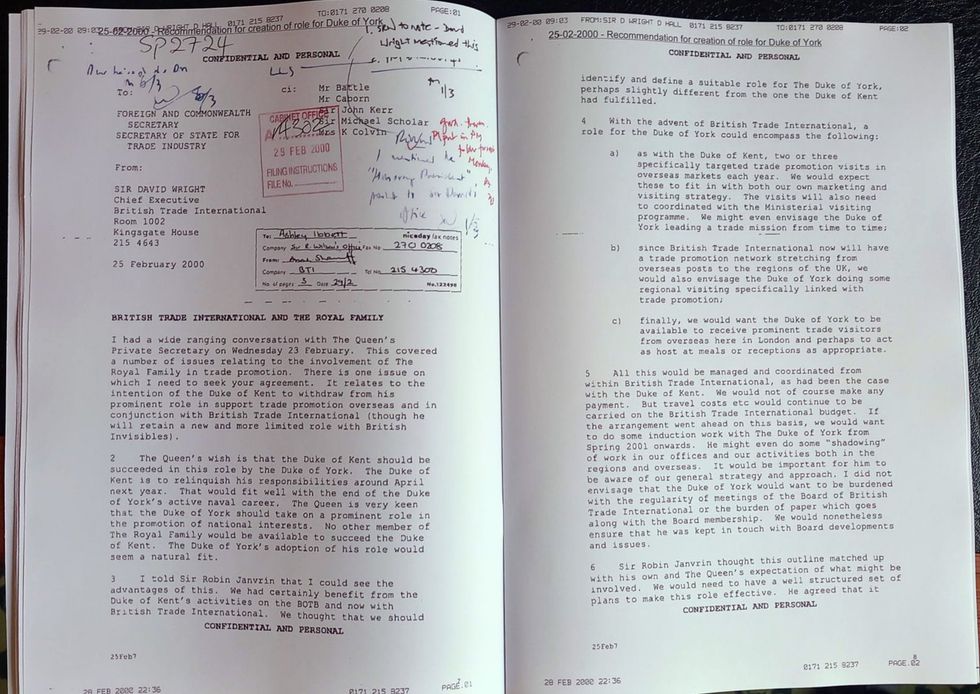 29-02-00 09:03 FROM:SIR D WRIGHT D HALL 0171 215 8237 TO:0171 270 0208 PAGE:01
25-02-2000 - Recommendation for creation of role for Duke of York
SP2724
CONFIDENTIAL AND PERSONAL
To:
FOREIGN AND COMMONWEALTH
SECRETARY
SECRETARY OF STATE FOR
TRADE INDUSTRY
ci: Mr Battle
Mr Caborn
Sir John Kerr
Sir Michael Scholar
Mrs K Colvin
1/3
CABINET OFFICE
A4302
29 FEB 2000
FILING INSTRUCTIONS
FILE No.
From:
SIR DAVID WRIGHT
Chief Executive
British Trade International
Room 1002
Kingsgate House
215 4643
25 February 2000
I mentioned the
"Honorary President"
point to
office
1/3
To: Ashley Ibbett niceday fax notes
Company Sir R. Wilson's Office Fax No 270 0208
From:
Company BTI Tel No 215 4300
No. of pages 3 Date 29/2 No.122496
BRITISH TRADE INTERNATIONAL AND THE ROYAL FAMILY
I had a wide ranging conversation with The Queen's
Private Secretary on Wednesday 23 February. This covered
a number of issues relating to the involvement of The
Royal Family in trade promotion. There is one issue on
which I need to seek your agreement. It relates to the
intention of the Duke of Kent to withdraw from his
prominent role in support trade promotion overseas and in
conjunction with British Trade International (though he
will retain a new and more limited role with British
Invisibles).
2 The Queen's wish is that the Duke of Kent should be
succeeded in this role by the Duke of York. The Duke of
Kent is to relinquish his responsibilities around April
next year. That would fit well with the end of the Duke
of York's active naval career. The Queen is very keen
that the Duke of York should take on a prominent role in
the promotion of national interests. No other member of
The Royal Family would be available to succeed the Duke
of Kent. The Duke of York's adoption of his role would
seem a natural fit.
3 I told Sir Robin Janvrin that I could see the
advantages of this. We had certainly benefit from the
Duke of Kent's activities on the BOTB and now with
British Trade International. We thought that we should
CONFIDENTIAL AND PERSONAL
25Feb7
2
28 FEB 2000 22:36 0171 215 8237 PAGE.01
29-02-00 09:03 FROM:SIR D WRIGHT D HALL 0171 215 8237 TO:0171 270 0208 PAGE:02
25-02-2000 - Recommendation for creation of role for Duke of York
CONFIDENTIAL AND PERSONAL
identify and define a suitable role for The Duke of York,
perhaps slightly different from the one the Duke of Kent
had fulfilled.
4 With the advent of British Trade International, a
role for the Duke of York could encompass the following:
a) as with the Duke of Kent, two or three
specifically targeted trade promotion visits in
overseas markets each year. We would expect
these to fit in with both our own marketing and
visiting strategy. The visits will also need
to coordinated with the Ministerial visiting
programme. We might even envisage the Duke of
York leading a trade mission from time to time;
b) since British Trade International now will have
a trade promotion network stretching from
overseas posts to the regions of the UK, we
would also envisage the Duke of York doing some
regional visiting specifically linked with
trade promotion;
c) finally, we would want the Duke of York to be
available to receive prominent trade visitors
from overseas here in London and perhaps to act
as host at meals or receptions as appropriate.
5 All this would be managed and coordinated from
within British Trade International, as had been the case
with the Duke of Kent. We would not of course make any
payment. But travel costs etc would continue to be
carried on the British Trade International budget. If
the arrangement went ahead on this basis, we would want
to do some induction work with The Duke of York from
Spring 2001 onwards. He might even do some "shadowing"
of work in our offices and our activities both in the
regions and overseas. It would be important for him to
be aware of our general strategy and approach. I did not
envisage that the Duke of York would want to be burdened
with the regularity of meetings of the Board of British
Trade International or the burden of paper which goes
along with the Board membership. We would nonetheless
ensure that he was kept in touch with Board developments
and issues.
6 Sir Robin Janvrin thought this outline matched up
with his own and The Queen's expectation of what might be
involved. We would need to have a well structured set of
plans to make this role effective. He agreed that it
CONFIDENTIAL AND PERSONAL
25Feb7
8
28 FEB 2000 22:36 0171 215 8237 PAGE.02